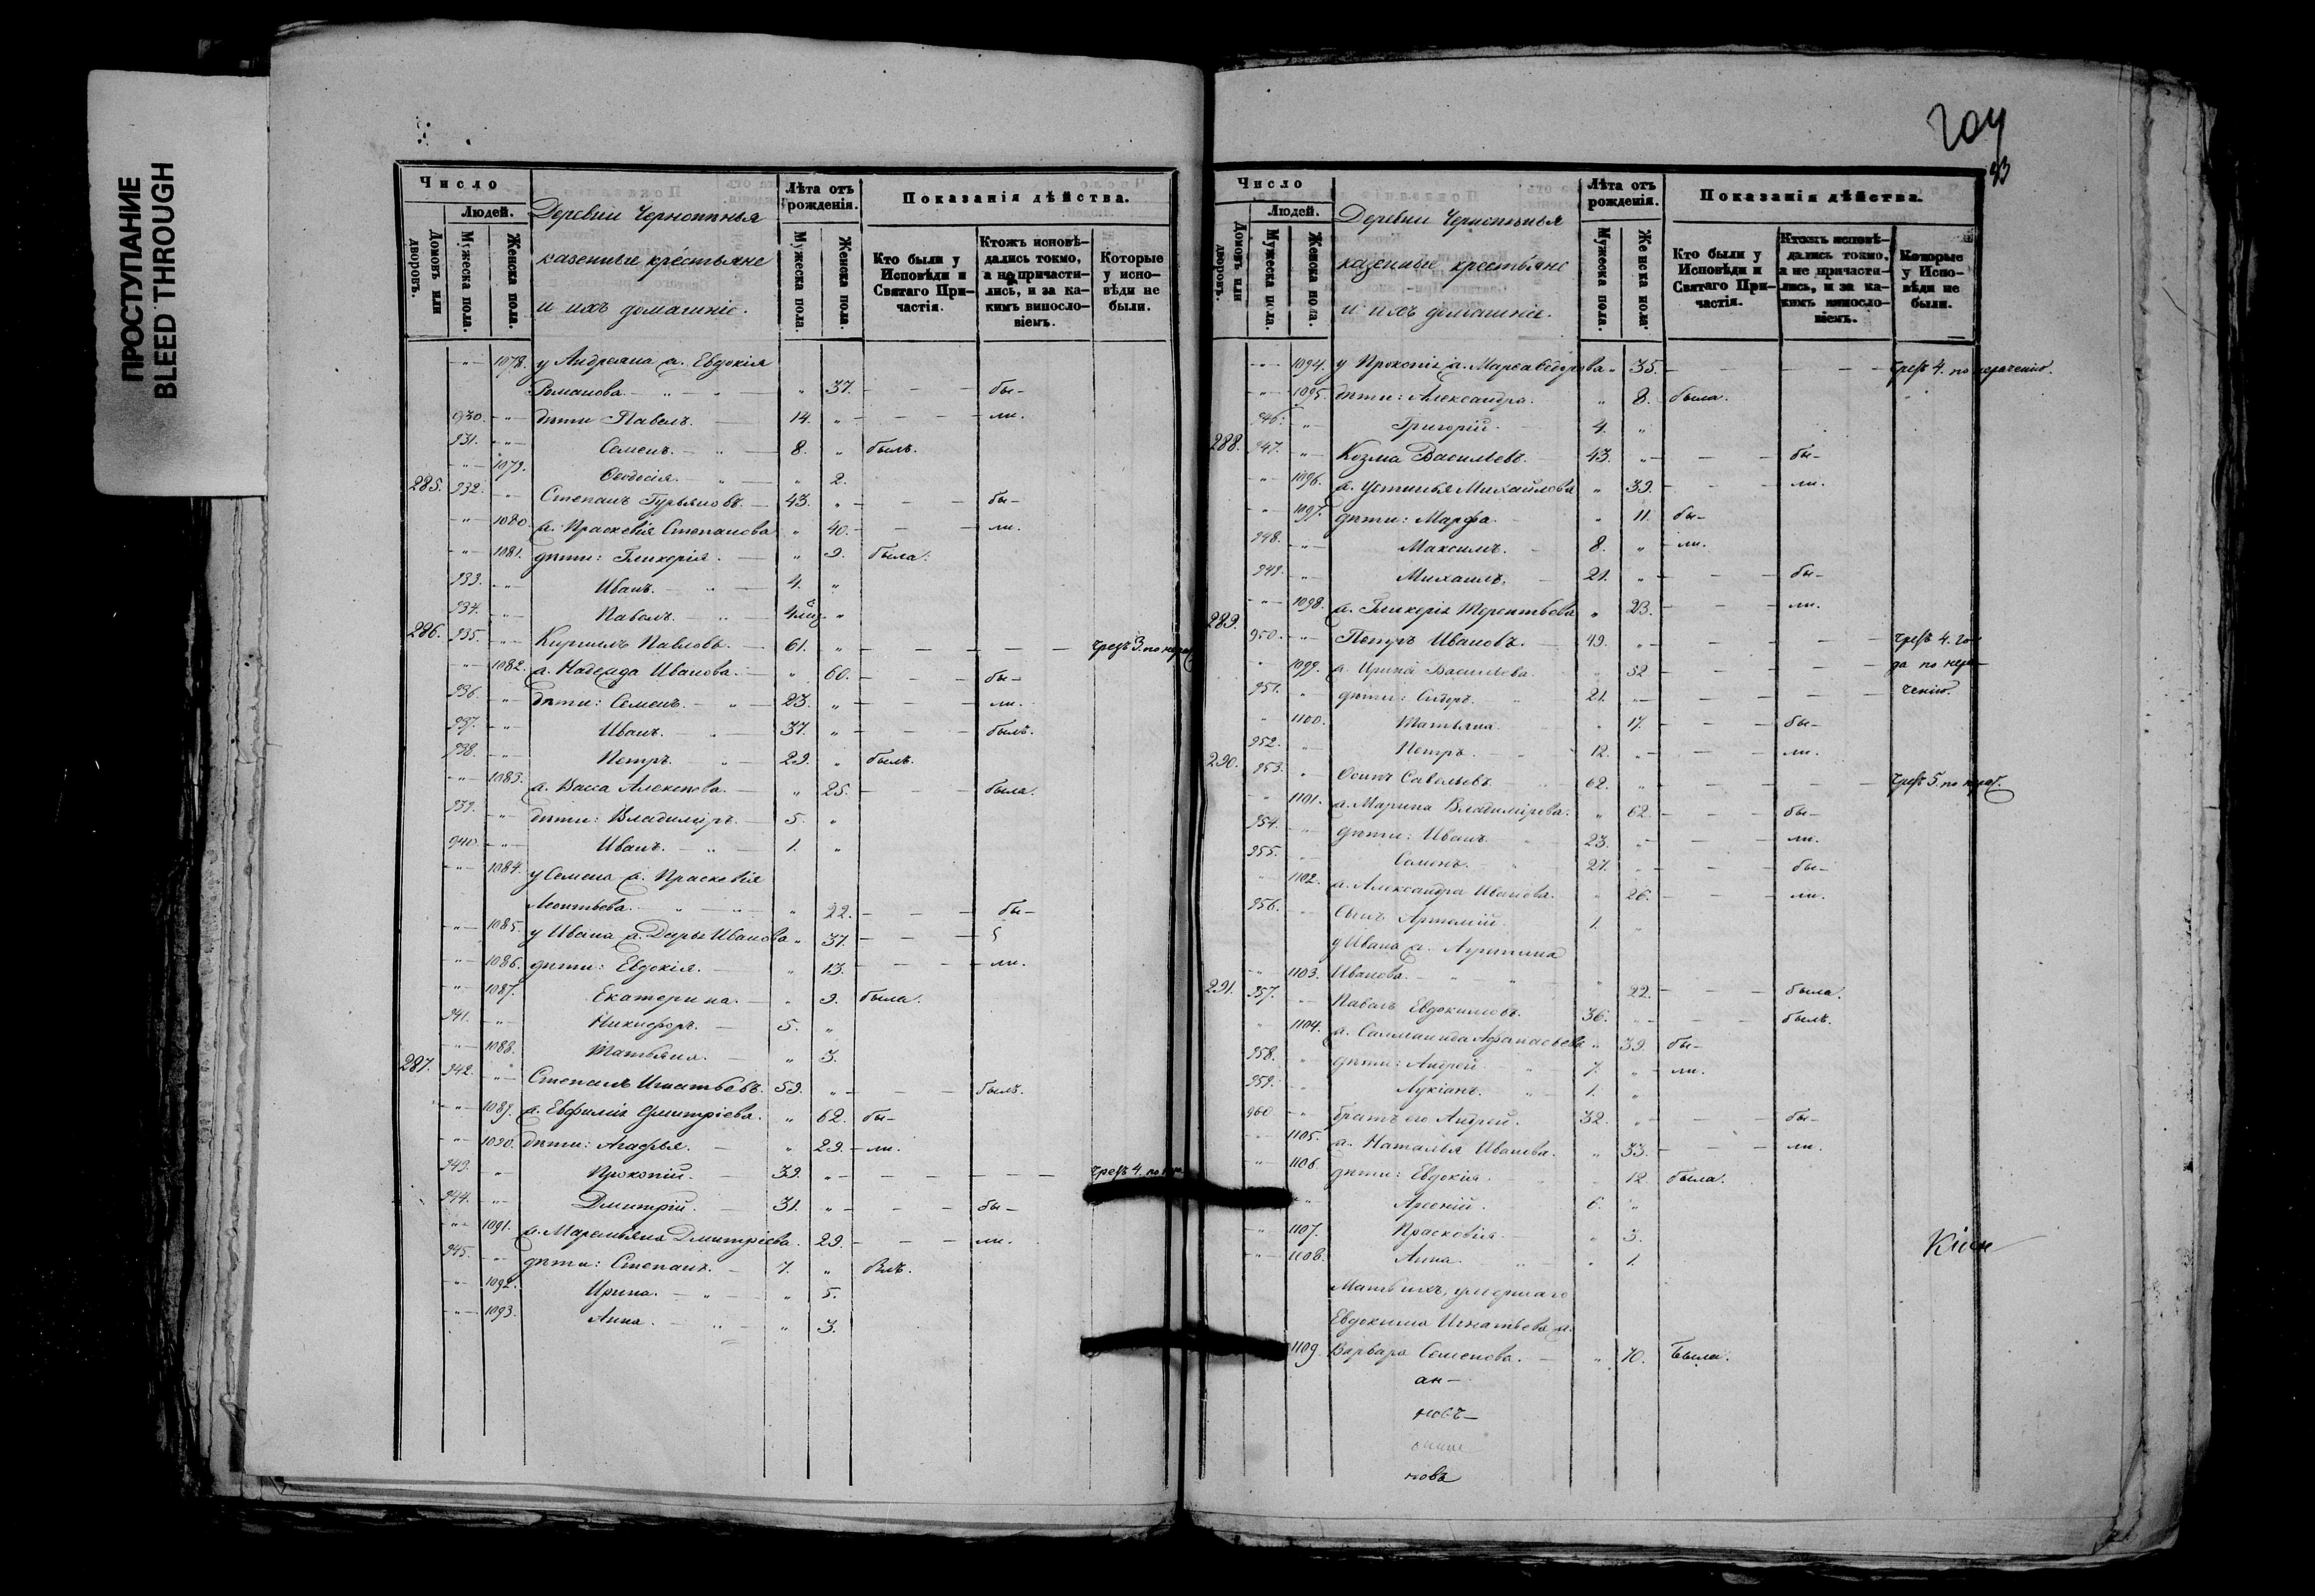 ПРОСТУПАНИЕ
BLEED THROUGH
Число
Людей.
Домовъ или дворовъ.
Мужеска пола.
Женска пола.
казенные крестьяне
и ихъ домашніе.
Лѣта отъ рожденія.
Мужеска пола.
Женска пола.
Показанія дѣйства.
Кто были у Исповѣди и Святаго Причастія.
Ктожъ исповѣдались токмо, а не причастились, и за какимъ винословіемъ.
Которые у исповѣди не были.
1078. у Андреяна ж. Евдокія
Романова 37. бы-
930. дѣти Павелъ. 14. ли.
931. Семенъ. 8. былъ.
1079. Ѳеодосія. 2.
285. 932. Степанъ Гурьяновъ. 43. бы-
1080. ж. Праскевія Степанова 40. ли.
1081. дѣти: Гликерія. 9. была.
933. Иванъ. 4.
934. Павелъ.
286. 935. Кириллъ Павловъ. 61. чрезъ 3. по
1082. ж. Надежда Иванова. 60. бы-
936. дѣти: Семенъ. 23. ли.
937. Иванъ. 37. былъ.
938. Петръ. 29. былъ.
1083. ж. Васса Алексѣева. 25. была.
939. дѣти: Владиміръ. 5.
940. Иванъ. 1.
1084. у Семена ж. Праскевія
Леонтьева. 22. бы-
1085. у Ивана ж. Дарья Иванова 37.
1086. дѣти: Евдокія. 13. ли.
1087. Екатерина. 9. была.
941. Никифоръ. 5.
1088. Татьяна. 3.
287. 942. Степанъ Игнатьевъ. 59. былъ.
1089. ж. Евфимія Дмитріева. 62. бы-
1090. дѣти: Агафья. 29. ли.
943. Прокопій. 39. чрезъ 4. по
944. Дмитрій. 31. бы-
1091. ж. Маремьяна Дмитріева. 29. ли.
945. дѣти: Степанъ. 7.
1092. Ирина. 5.
1093. Анна. 3.
204
93
Число
Людей.
Домовъ или дворовъ.
Мужеска пола.
Женска пола.
казенные крестьяне
и ихъ домашніе.
Лѣта отъ рожденія.
Мужеска пола.
Женска пола.
Показанія дѣйства.
Кто были у Исповѣди и Святаго Причастія.
Ктожъ исповѣдались токмо, а не причастились, и за какимъ винословіемъ.
Которые у Исповѣди не были.
1094. у Прокопія ж. Марѳа Ѳедорова 35. чрезъ 4. по нераченію.
1095. дѣти: Александра. 8. была.
946. Григорій. 4.
288. 947. Козма Васильевъ. 43. бы-
1096. ж. Устинья Михайлова 39. ли.
1097. дѣти: Марфа. 11. бы-
948. Максимъ. 8. ли.
949. Михаилъ. 21. бы-
1098. ж. Гликерія Терентьева 23. ли.
289. 950. Петръ Ивановъ. 49. чрезъ 4. го-
1099. ж. Ирина Васильева 52 да по нера-
951. дѣти: Сидоръ. 21. ченію.
1100. Татьяна. 17. бы-
952. Петръ. 12. ли.
290. 953. Осипъ Савельевъ. 62. чрезъ 5. по
1101. ж. Марина Владимірова. 62. бы-
954. дѣти: Иванъ. 23. ли.
955. Семенъ. 27. бы-
1102. ж. Александра Иванова. 26. ли.
956. Сынъ Артемій. 1.
у Ивана ж.
1103. Иванова. 22. была.
291. 957. Павелъ Евдокимовъ. 36. былъ.
1104. ж. Афанасьева 39. бы-
958. дѣти: Андрей. 7. ли.
959. Лукіанъ. 1.
960 братъ его Андрей. 32. бы-
1105. ж. Наталья Иванова. 33. ли.
1106 дѣти: Евдокія. 12 была.
Арсеній. 6.
1107. Прасковія. 3.
1108. Анна. 1.
Мать ихъ, умершаго
Евдокима Игнатьева ж.
1109 Варвара Семенова. 70. была.
ан-
новъ-
нова